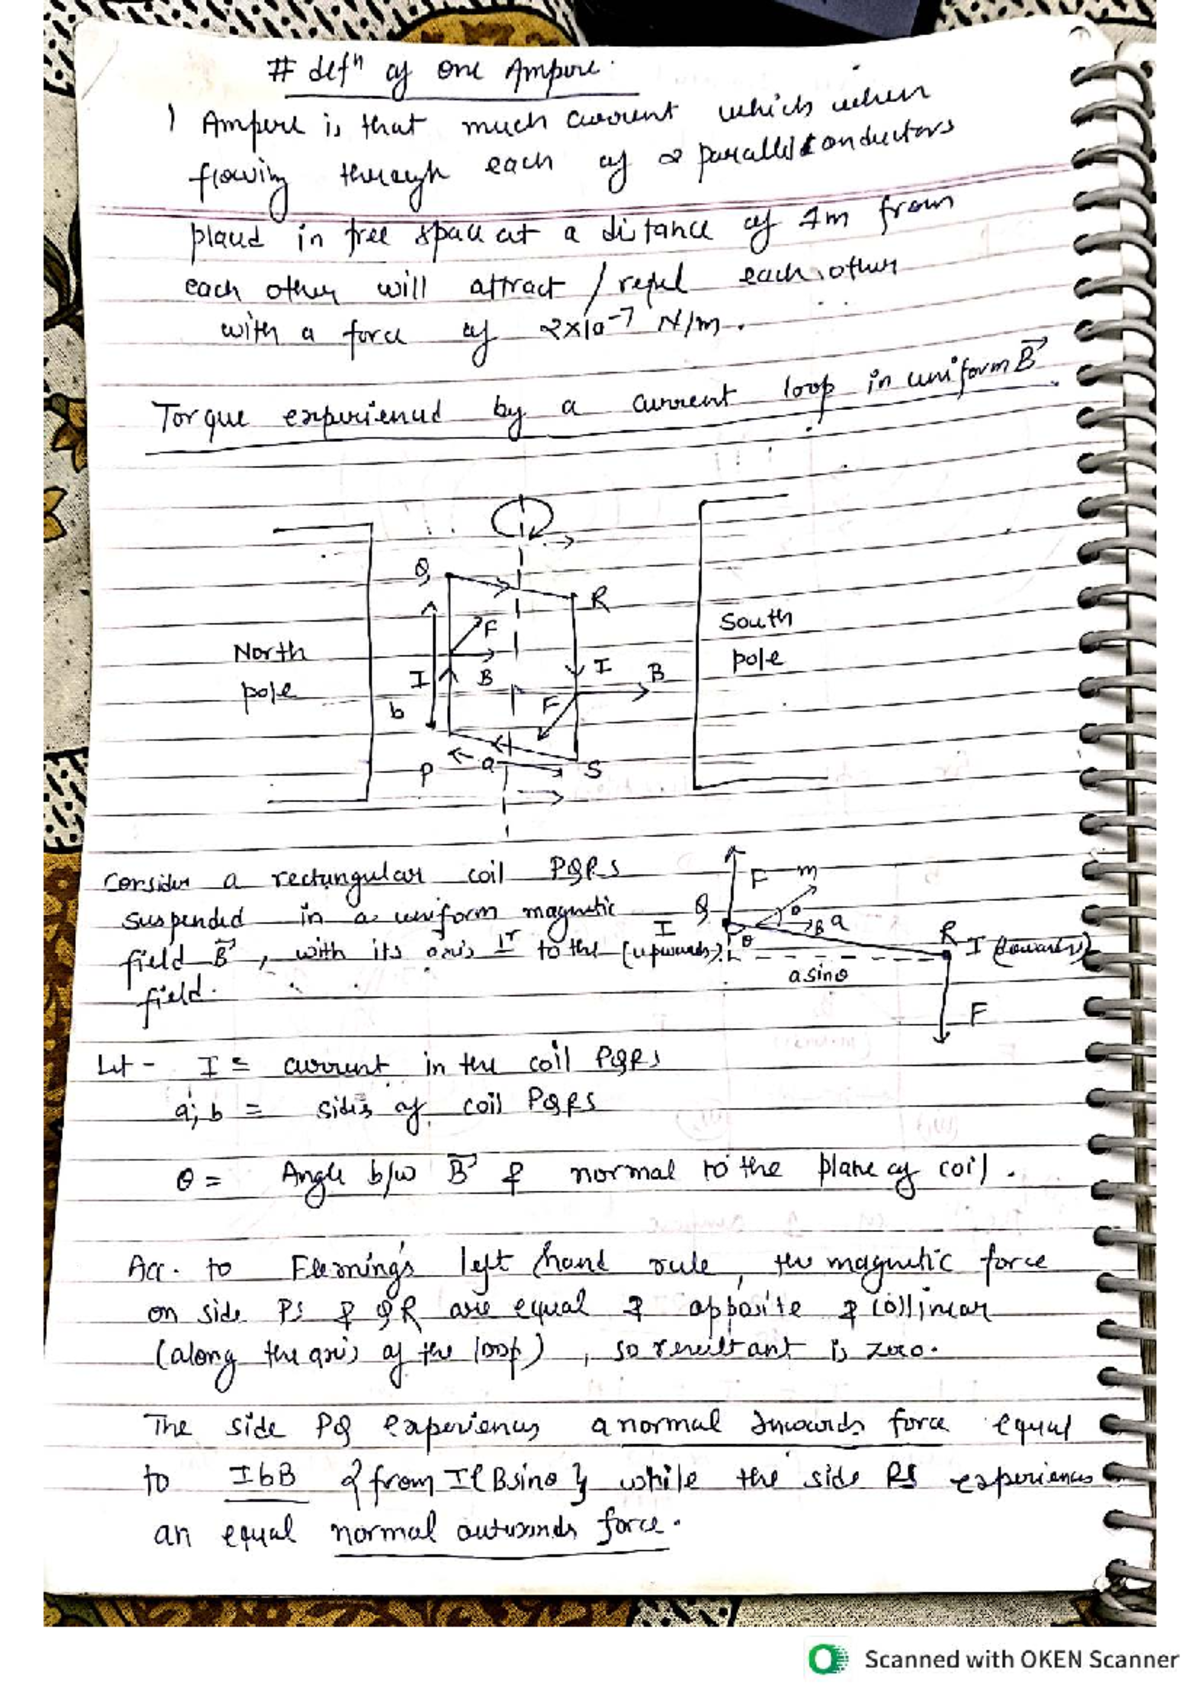 # defⁿ of one Ampere.
1 Ampere is that much current which when
flowing through each of 2 parallel conductors
placed in free space at a distance of 1m from
each other will attract / repel each other
with a force of 2×10⁻⁷ N/m.
Torque experienced by a current loop in uniform B⃗.
Q
R
F
South
pole
North
pole
I
B
I
B
b
F
P
a
S
Consider a rectangular coil PQRS
suspended in a uniform magnetic
field B⃗, with its axis ⊥r to the
field.
F
m
Q
θ
I
B
a
(upwards)
θ
R
I
a sinθ
F
Let - I = current in the coil PQRS
a, b = sides of coil PQRS
θ = Angle b/w B⃗ & normal to the plane of coil.
Acc. to Fleming's left hand rule, the magnetic force
on side PS & QR are equal & opposite & collinear
(along the axis of the loop), so resultant is zero.
The side PQ experiences a normal inwards force equal
to IbB {from IlBsinθ} while the side RS experiences
an equal normal outwards force.
Scanned with OKEN Scanner